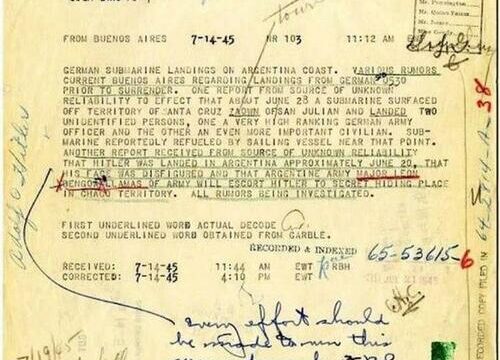 FROM BUENOS AIRES 7-14-45 NR 103 11:12 AM
GERMAN SUBMARINE LANDINGS ON ARGENTINA COAST. VARIOUS RUMORS
CURRENT BUENOS AIRES REGARDING LANDINGS FROM GERMAN U530
PRIOR TO SURRENDER. ONE REPORT FROM SOURCE OF UNKNOWN
RELIABILITY TO EFFECT THAT ABOUT JUNE 28 A SUBMARINE SURFACED
OFF TERRITORY OF SANTA CRUZ OF SAN JULIAN AND LANDED TWO
UNIDENTIFIED PERSONS, ONE A VERY HIGH RANKING GERMAN ARMY
OFFICER AND THE OTHER AN EVEN MORE IMPORTANT CIVILIAN. SUB-
MARINE REPORTEDLY REFUELED BY SAILING VESSEL NEAR THAT POINT.
ANOTHER REPORT RECEIVED FROM SOURCE OF UNKNOWN RELIABILITY
THAT HITLER WAS LANDED IN ARGENTINA APPROXIMATELY JUNE 20, THAT
HIS FACE WAS DISFIGURED AND THAT ARGENTINE ARMY MAJOR LEON
BENGOA LLAMAS OF ARMY WILL ESCORT HITLER TO SECRET HIDING PLACE
IN CHACO TERRITORY. ALL RUMORS BEING INVESTIGATED.
FIRST UNDERLINED WORD ACTUAL DECODE
SECOND UNDERLINED WORD OBTAINED FROM GARBLE.
RECORDED & INDEXED 65-53615-6
RECEIVED: 7-14-45 11:44 AM EWT RBH
CORRECTED: 7-14-45 4:10 PM EWT
every effort should
be made to run this
Adolf Hitler
RECORDED COPY FILED IN